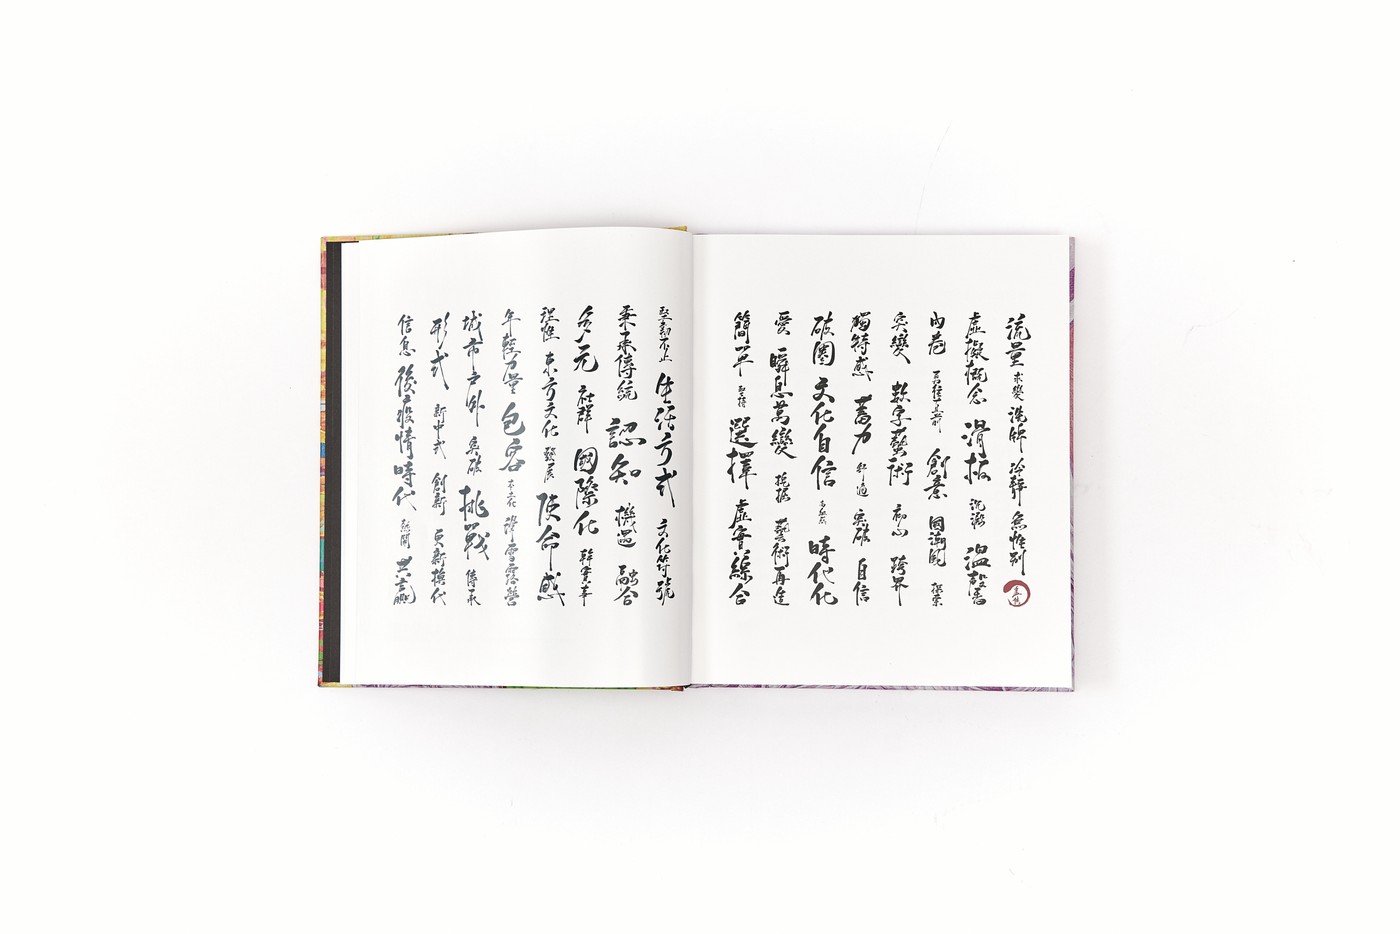 流量 求變 洗牌 詮釋 無性別
虛擬概念 滑板 沉澱 溫故
內卷 勇往直前 創意 國潮風 探索
突變 數字藝術 初心 跨界
獨特感 奮力 舒適 突破 自信
破圈 文化自信 時代化
愛 瞬息萬變 挖掘 藝術再造
簡單 堅持 選擇 虛實綜合
堅韌不止 生活方式 文化符號
秉承傳統 認知 機遇 融合
多元 社群 國際化 幹實事
理性 東方文化 發展 使命感
年輕力量 包容 露營
城市戶外 突破 挑戰 傳承
形式 新中式 創新 更新換代
信息 後疫情時代 新聞 共贏